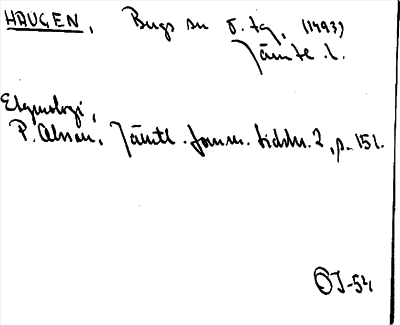 HAUGEN, Bergs sn ö. tg. (1493)
Jämtl. l.
Etymologi,
P. Olsson, Jämtl. fornm. tidskr. 2, p. 151.
OJ-54